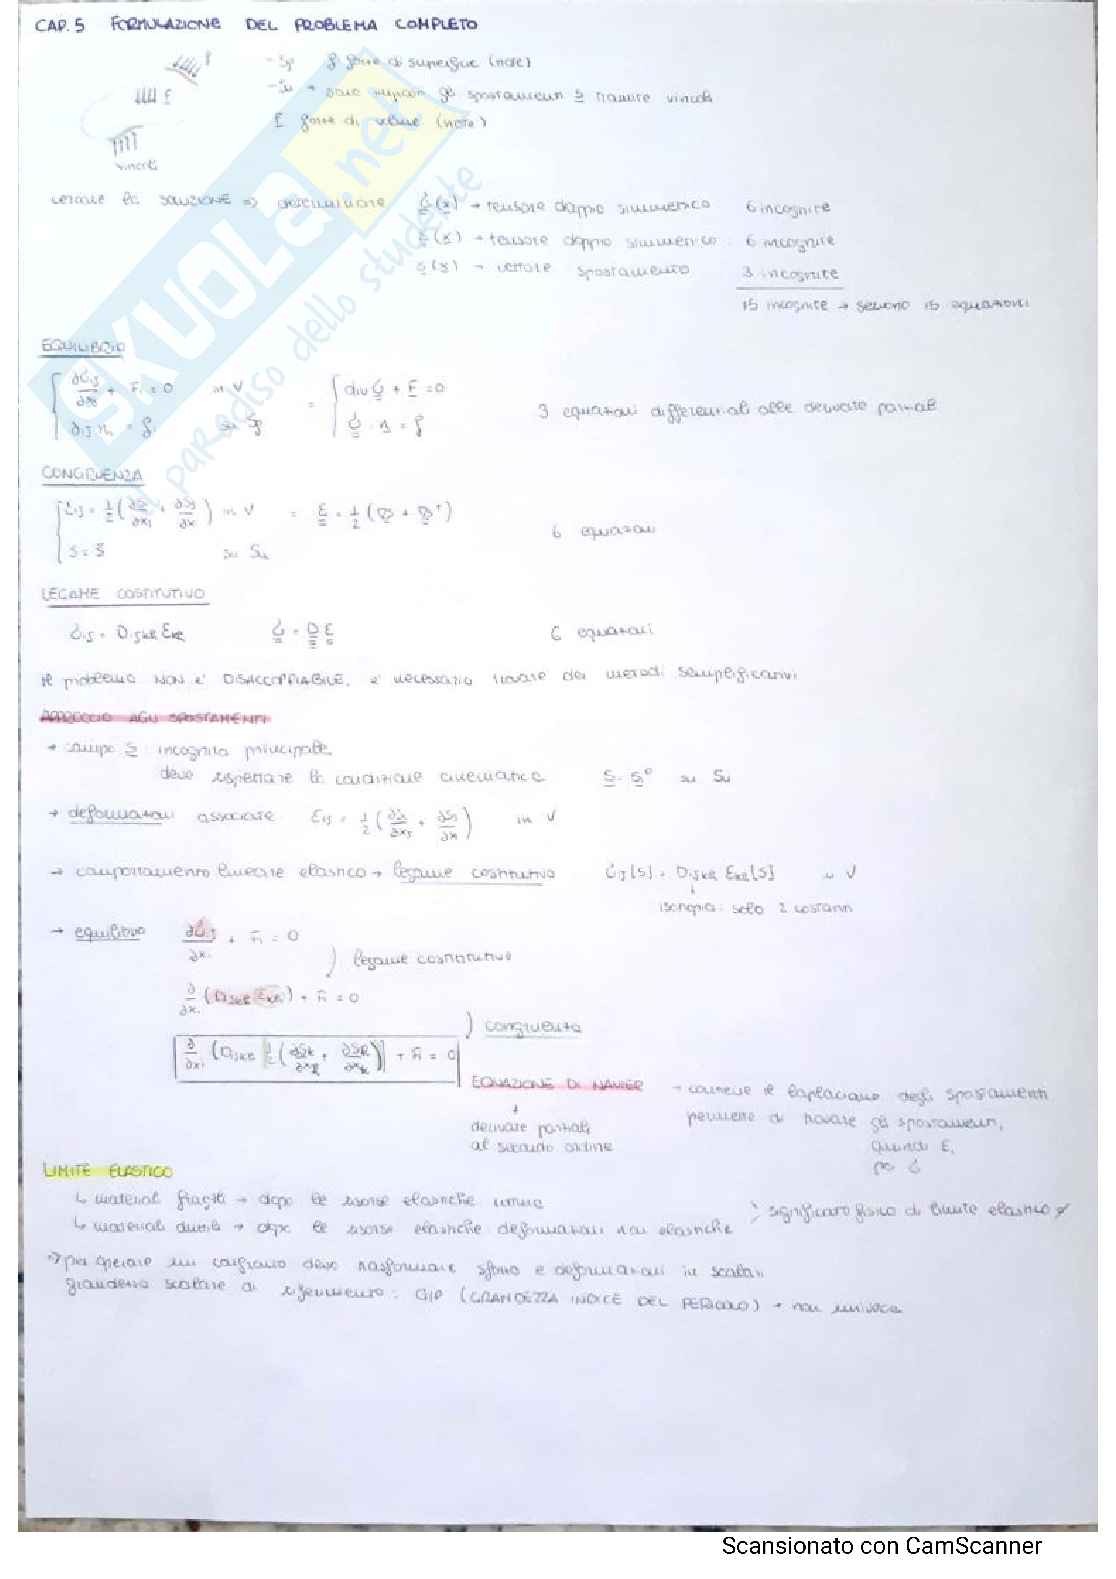 CAP. 5 FORMULAZIONE DEL PROBLEMA COMPLETO
- Sp f forze di superficie (note)
- Su → sono gli spostamenti s tramite vincoli
F forze di volume (note)
f
F
vincoli
cercare la SOLUZIONE => determinare σ(x) → tensore doppio simmetrico 6 incognite
ε(x) → tensore doppio simmetrico 6 incognite
s(x) → vettore spostamento 3 incognite
15 incognite → servono 15 equazioni
EQUILIBRIO
∂σij/∂xi + Fi = 0 in V = div σ + F = 0
σij ni = fi su Sf σ · n = f
3 equazioni differenziali alle derivate parziali
CONGRUENZA
εij = 1/2 (∂si/∂xj + ∂sj/∂xi) in V = ε = 1/2 (D + Dᵀ)
s = s̄ su Su
6 equazioni
LEGAME COSTITUTIVO
σij = Dijkl Ekl σ = D ε 6 equazioni
il problema NON è DISACCOPPIABILE, è necessario trovare dei metodi semplificativi
APPROCCIO AGLI SPOSTAMENTI
→ campo s incognita principale
deve rispettare la condizione cinematica s = s° su Su
→ deformazioni associate Eij = 1/2 (∂si/∂xj + ∂sj/∂xi) in V
→ comportamento lineare elastico → legame costitutivo σij[s] = Dijkl Ekl[s] in V
isotropia: solo 2 costanti
→ equilibrio ∂σij/∂xi + Fi = 0
) legame costitutivo
∂/∂xi (Dijkl Ekl) + Fi = 0
) congruenza
∂/∂xi (Dijkl 1/2 (∂sk/∂xl + ∂sl/∂xk)) + Fi = 0
EQUAZIONE DI NAVIER → contiene il laplaciano degli spostamenti
↓
derivate parziali
al secondo ordine
permette di trovare gli spostamenti,
quindi E,
poi σ
LIMITE ELASTICO
↳ materiali fragili → dopo le risorse elastiche
↳ materiali duttili → dopo le risorse elastiche deformazioni non elastiche
significato fisico di limite elastico
→ per operare un confronto devo trasformare sforzo e deformazioni in scalari
grandezza scalare di riferimento: GIP (GRANDEZZA INDICE DEL PERICOLO) → non univoca
SKUOLA.net
il paradiso dello studente
Scansionato con CamScanner